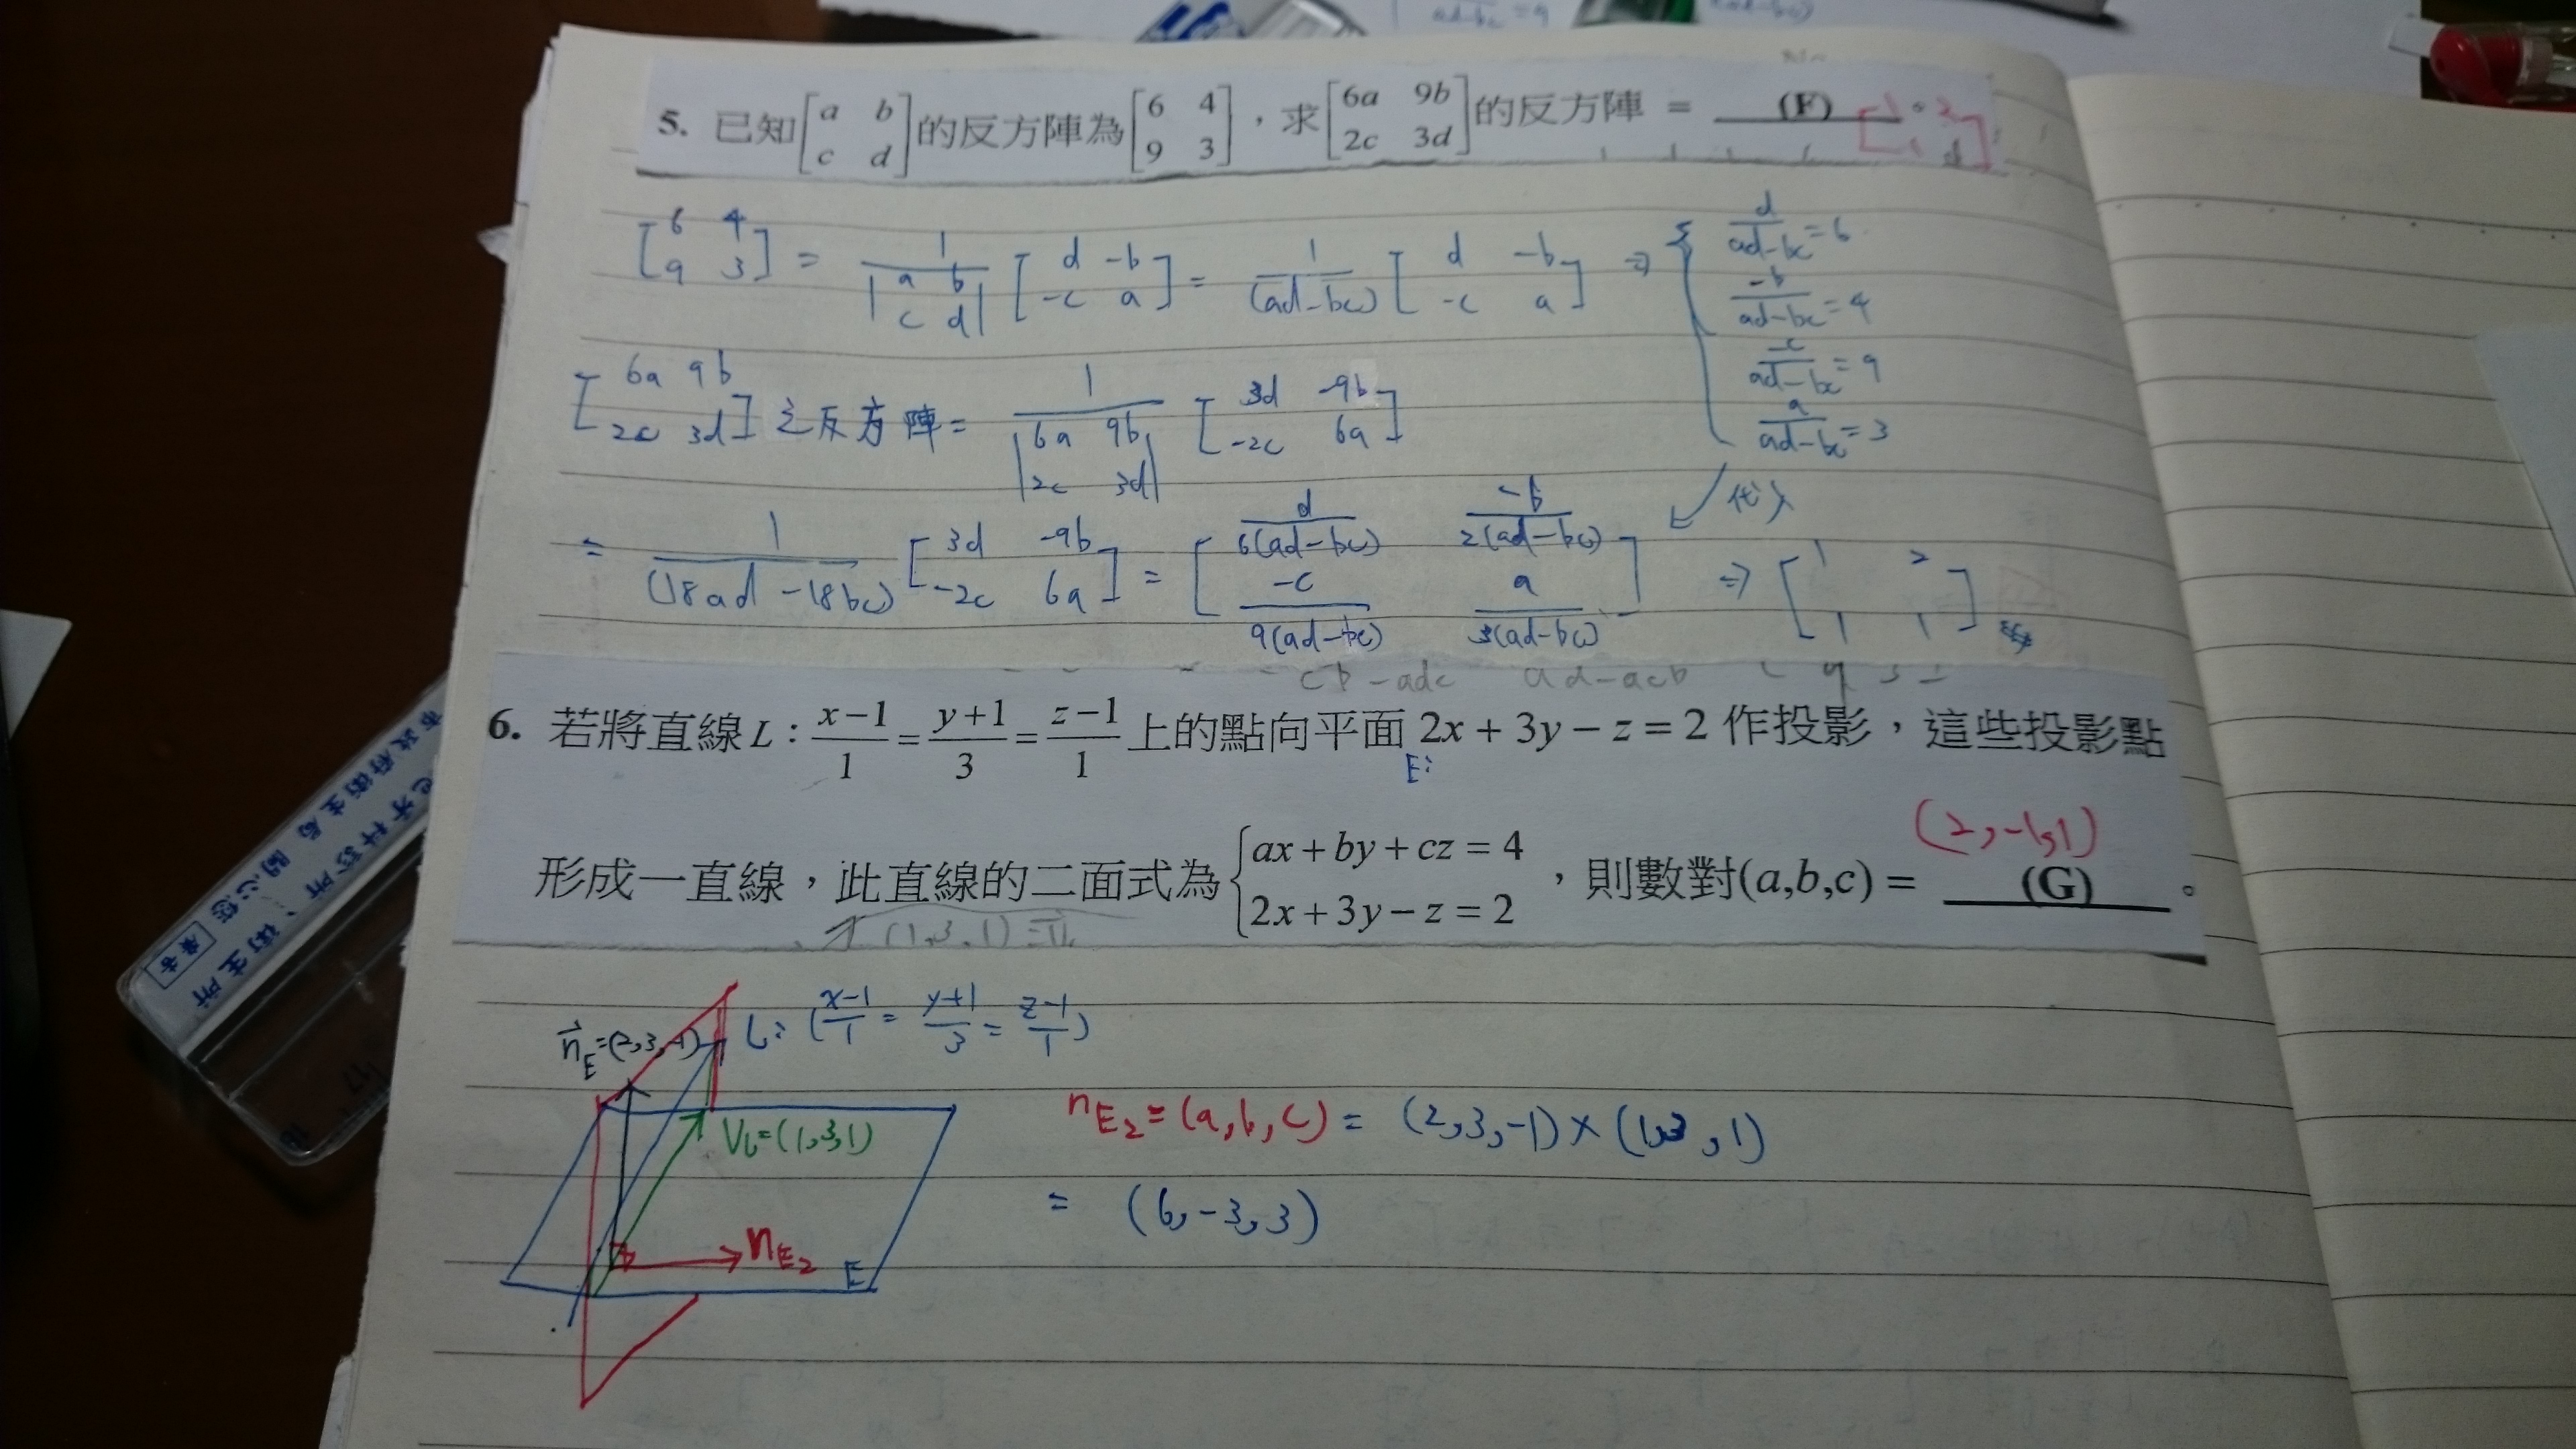 ad-bc = 9
5. 已知[a b; c d]的反方陣為[6 4; 9 3]，求[6a 9b; 2c 3d]的反方陣 = (F)。
[1 2; 1 1]
[6 4; 9 3] = 1/|a b; c d| [d -b; -c a] = 1/(ad-bc) [d -b; -c a] ⇒ { d/(ad-bc) = 6
-b/(ad-bc) = 4
-c/(ad-bc) = 9
a/(ad-bc) = 3
[6a 9b; 2c 3d] 之反方陣 = 1/|6a 9b; 2c 3d| [3d -9b; -2c 6a]
代入
= 1/(18ad-18bc) [3d -9b; -2c 6a] = [d/6(ad-bc) -b/2(ad-bc); -c/9(ad-bc) a/3(ad-bc)] ⇒ [1 2; 1 1]
cb-adc ad-acb
6. 若將直線L : (x-1)/1 = (y+1)/3 = (z-1)/1 上的點向平面 2x + 3y - z = 2 作投影，這些投影點
E:
(2,-1,1)
形成一直線，此直線的二面式為{ax + by + cz = 4; 2x + 3y - z = 2，則數對(a,b,c) = (G)。
(1,3,1)
n⃗E=(2,3,-1) L: (x-1)/1 = (y+1)/3 = (z-1)/1
VL=(1,3,1)
nE2 = (a,b,c) = (2,3,-1)×(1,3,1)
= (6,-3,3)
nE2
E